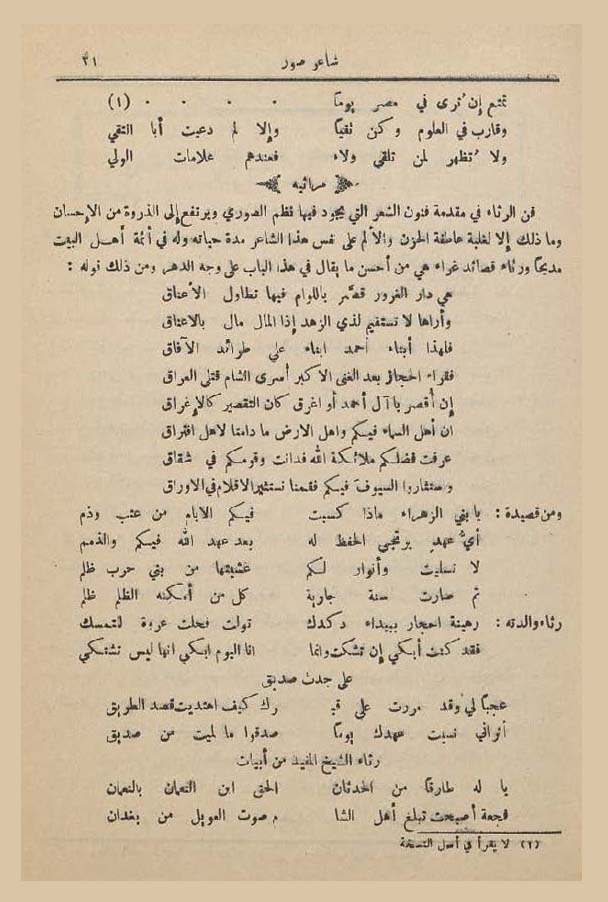 شاعر صور ٣١
تمتع إن تُرى في مصر يوماً . . . . (١)
وقارب في العلوم وكن تقياً وإلا لم دعيت أبا التقي
ولا تُظهر لمن تلقى ولاء فعندهم علامات الولي
مراثيه
فن الرثاء في مقدمة فنون الشعر التي يجود فيها نظم الصوري ويرتفع إلى الذروة من الإحسان
وما ذلك إلا لغلبة عاطفة الحزن والألم على نفس هذا الشاعر مدة حياته وله في أئمة أهل البيت
مديحاً ورثاء قصائد غراء هي من أحسن ما يقال في هذا الباب على وجه الدهر ومن ذلك قوله :
هي دار الغرور قصَّر باللوام فيها تطاول الأعناق
وأراها لا تستقيم لذي الزهد إذا المال مال بالاعناق
فلهذا أبناء أحمد ابناء علي طرائد الآفاق
فقراء الحجاز بعد الغنى الاكبر أسرى الشام قتلى العراق
إن أقصر يا آل أحمد أو اغرق كان التقصير كالإغراق
ان أهل السماء فيكم واهل الارض ما دامتا لاهل افتراق
عرفت فضلكم ملائكة الله فدانت وقومكم في شقاق
وستثاروا السيوف فيكم فقمنا نستثير الاقلام في الاوراق
ومن قصيدة : يا بني الزهراء ماذا كسبت فيكم الايام من عتب وذم
أيُّ عهدٍ يرتجى الحفظ له بعد عهد الله فيكم والذمم
لا تسليت وأنوار لكم غشيتها من بني حرب ظلم
ثم صارت سنة جارية كل من أمكنه الظلم ظلم
رثاء والدته : رهينة احجار ببيداء دكدك تولت فحلت عروة المتمسك
فقد كنت أبكي إن تشكت وانما انا اليوم ابكي انها ليس تشتكي
على جدث صديق
عجباً لي وقد مررت على قبـ رك كيف اهتديت قصد الطريق
أتراني نسيت عهدك يوماً صدقوا ما لميت من صديق
رثاء الشيخ المفيد من أبيات
يا له طارقاً من الحدثان الحق ابن النعمان بالنعمان
فجعة أصبحت تبلغ أهل الشا م صوت العويل من بغدان
لا يقرأ في أصل النسخة